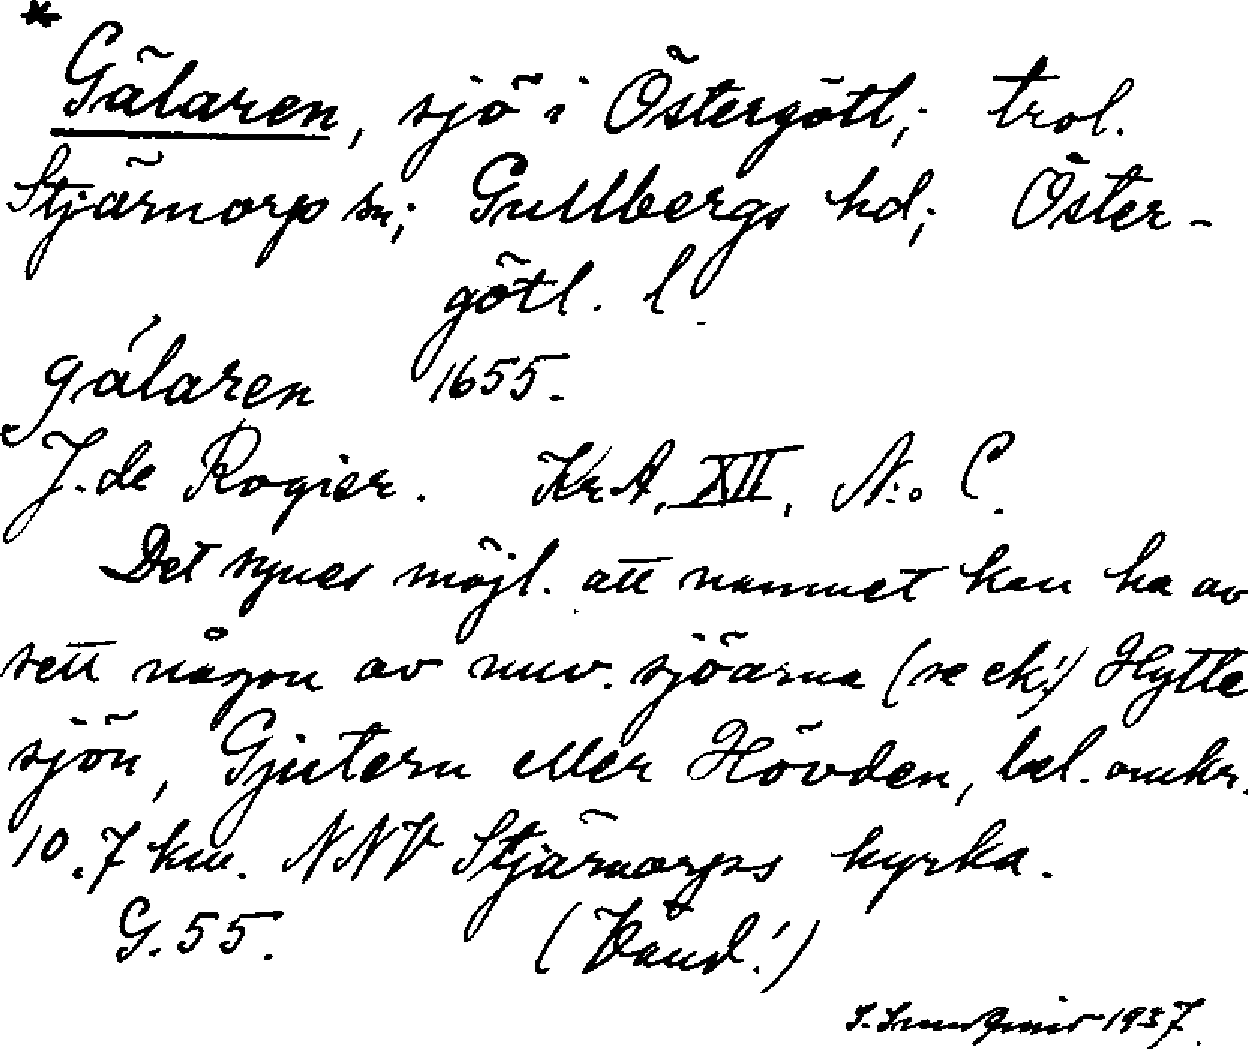 * Gälaren, sjö i Östergötl; trol.
Stjärnorp sn; Gullbergs hd; Öster-
götl. l.
gálaren 1655.
J. de Rogier. KrA, XII, N:o C.
Det synes möjl. att namnet kan ha av
sett någon av nuv. sjöarna (se ek!) Hytte
sjön, Gjutern eller Hövden, bel. omkr.
10.7 km. NNV Stjärnorps kyrka.
G. 55. (Vänd!)
1937.